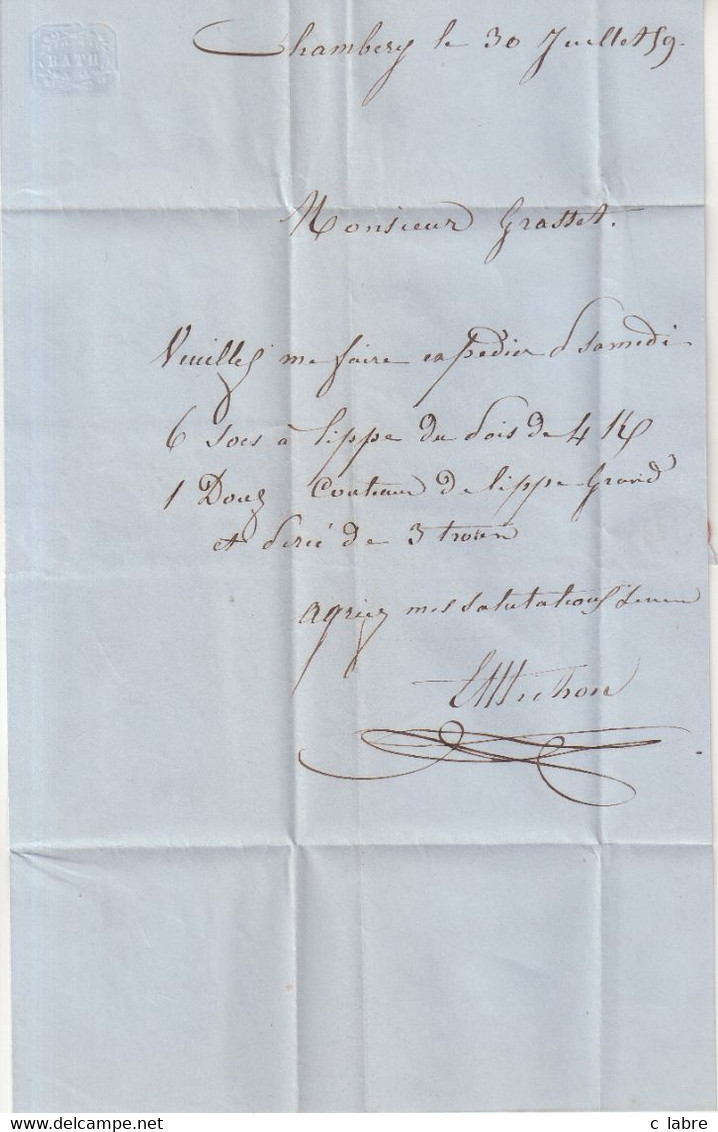 BATH
Chambery le 30 Juillet 59.
Monsieur Grasset.
Veuillez me faire expedier samedi
6 socs à lippe du pois de 4 K
1 Douz couteaux de lippe Grand
et percé de 3 trous
agriez mes salutations
delcampe.net
c labre